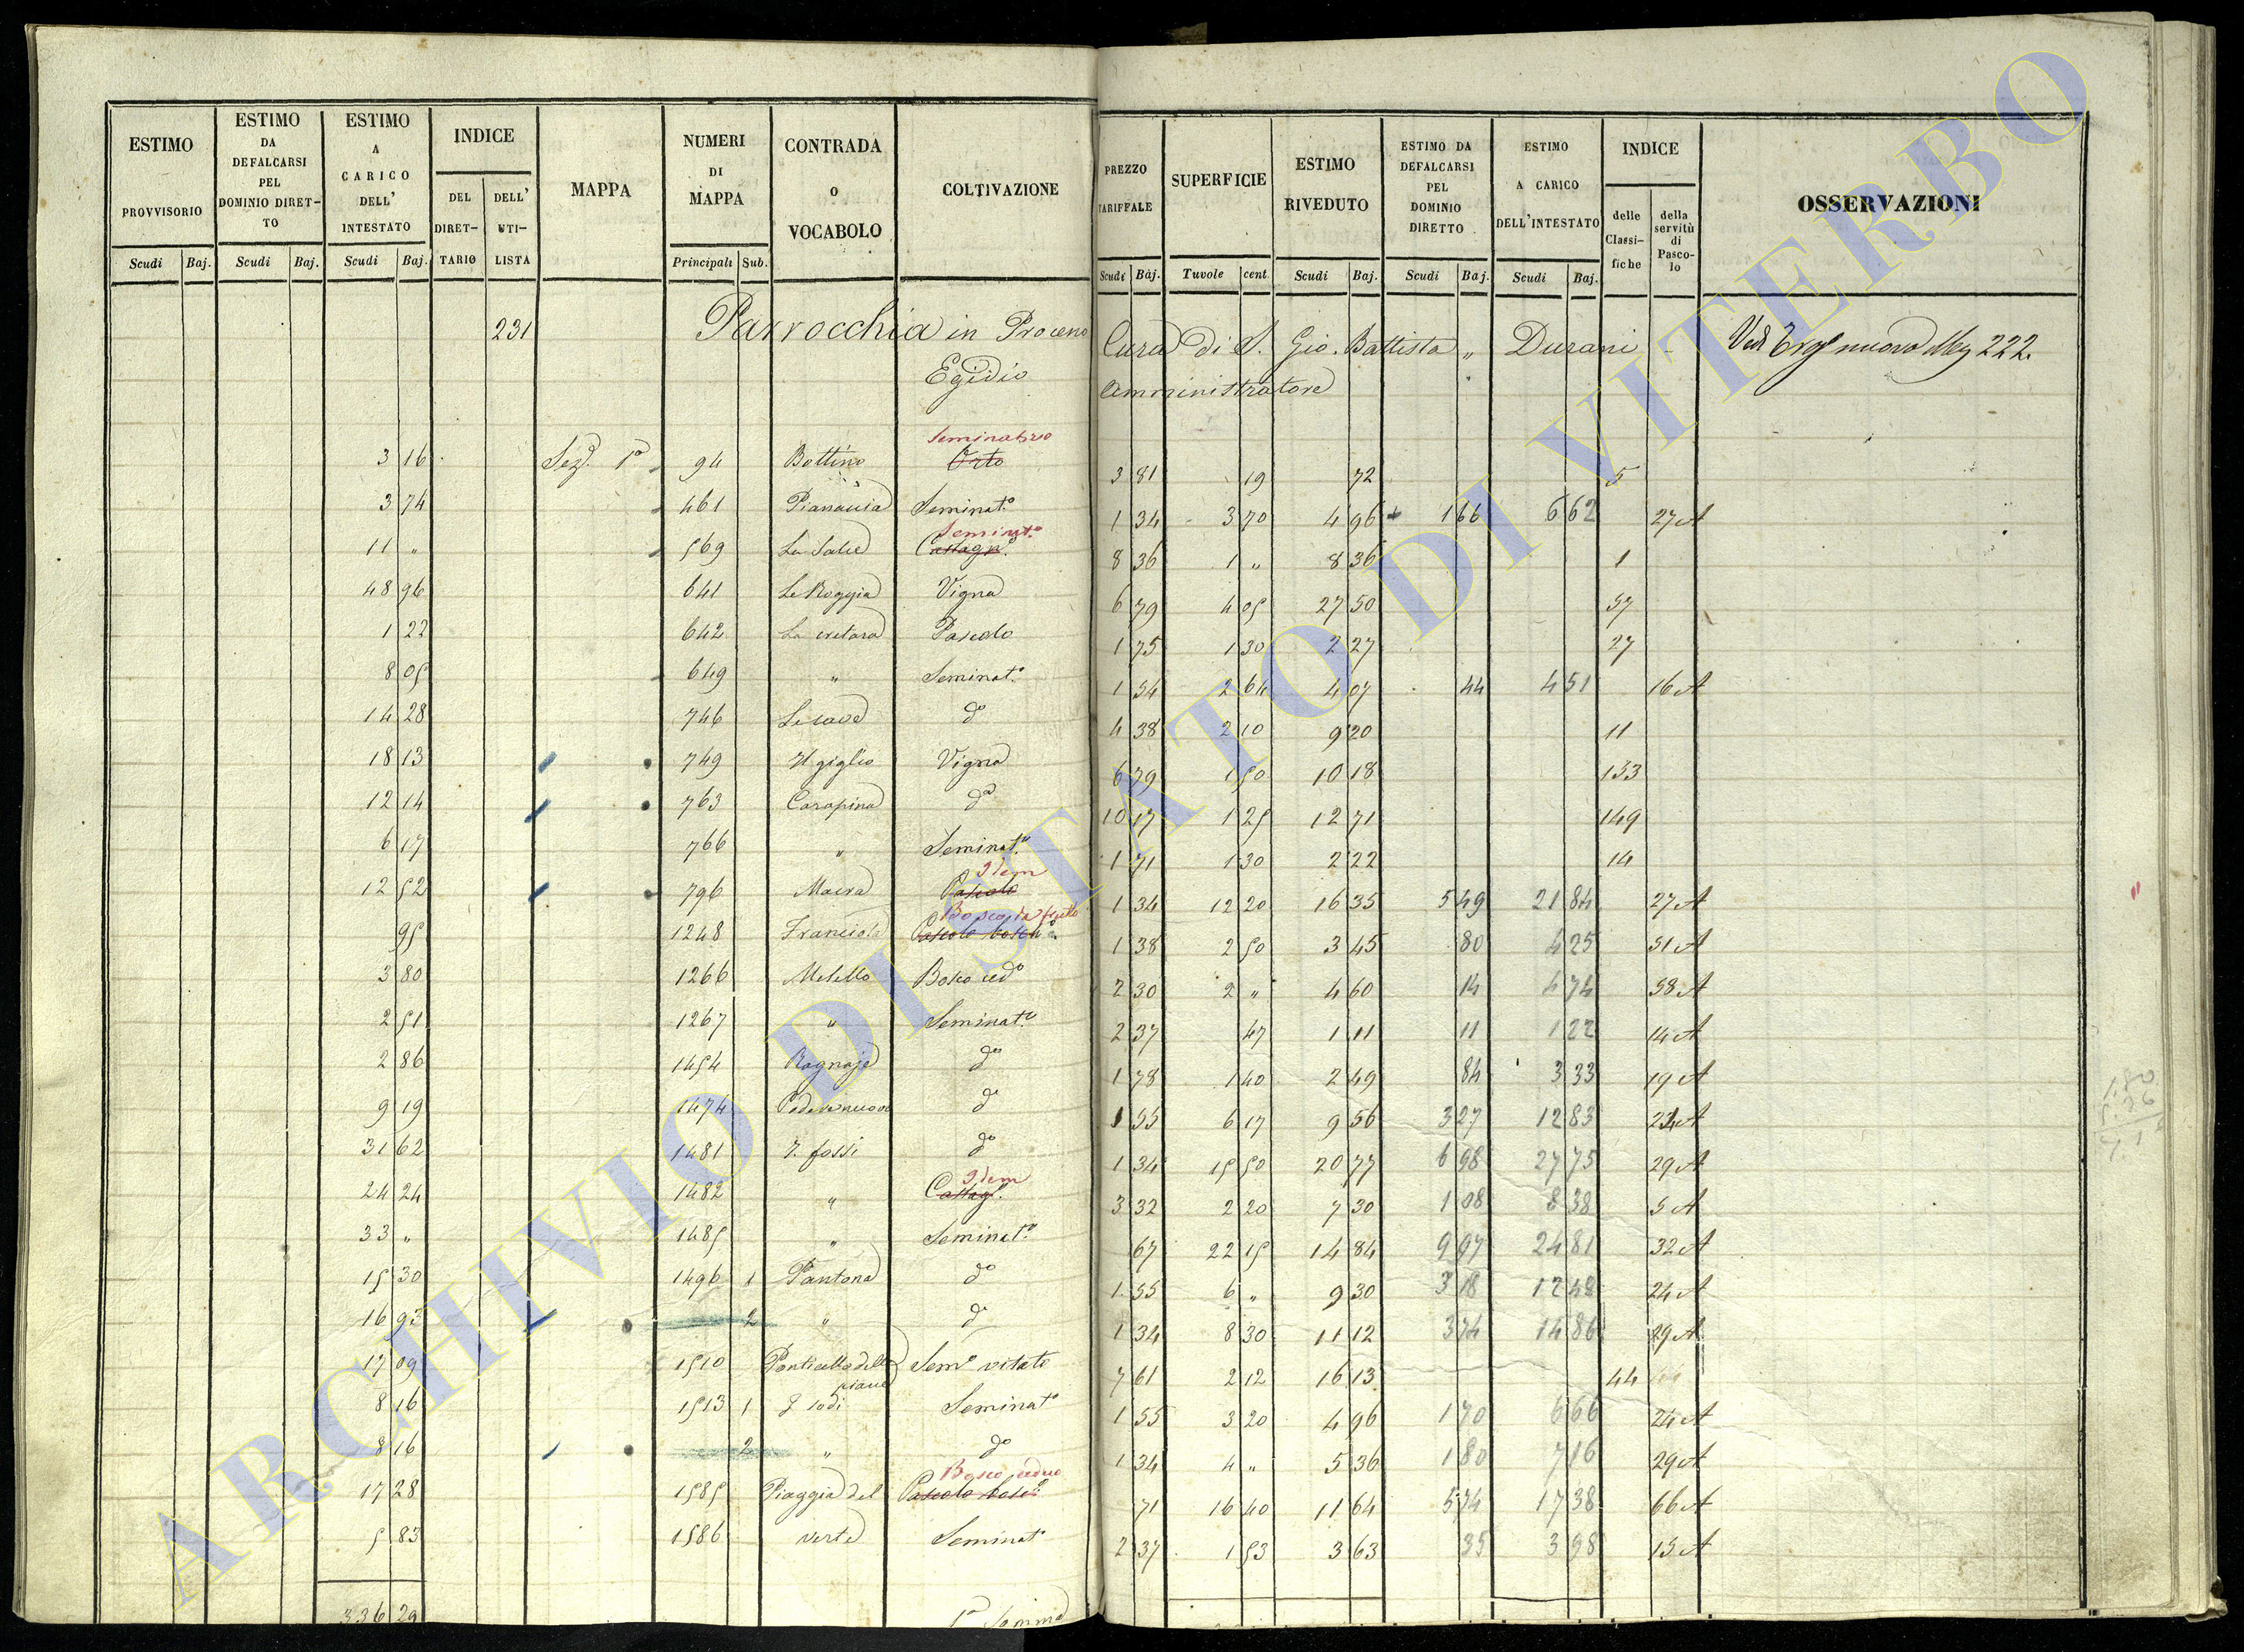 ESTIMO PROVVISORIO | ESTIMO DA DEFALCARSI PEL DOMINIO DIRET-TO | ESTIMO A CARICO DELL' INTESTATO | INDICE | MAPPA | NUMERI DI MAPPA | CONTRADA O VOCABOLO | COLTIVAZIONE | PREZZO TARIFFALE | SUPERFICIE | ESTIMO RIVEDUTO | ESTIMO DA DEFALCARSI PEL DOMINIO DIRETTO | ESTIMO A CARICO DELL'INTESTATO | INDICE | OSSERVAZIONI
DEL DIRET-TARIO | DELL' UTI-LISTA | delle Classi-fiche | della servitù di Pasco-lo
Scudi | Baj. | Scudi | Baj. | Scudi | Baj. | Principali | Sub. | Scudi | Baj. | Tavole | cent. | Scudi | Baj. | Scudi | Baj. | Scudi | Baj.
231 Parrocchia in Proceno Cura di S. Gio. Battista „ Durani nuovo 222.
Egidio Amministratore
Seminativo
3 16 Sez. 1a 94 Bottino Orto 3 81 19 72 5
3 74 461 Seminat.o 1 34 3 70 4 96 + 1 66 6 62 27 A
Seminat.o
11 „ 569 Castagn.o 8 36 1 „ 8 36 1
48 96 641 Le Roggia Vigna 6 79 4 05 27 50 57
1 22 642 Pascolo 1 75 1 30 2 27 27
8 05 649 „ Seminat.o 1 54 2 64 4 07 44 4 51 16 A
14 28 746 Le cave do 4 38 2 10 9 20 11
18 13 749 Il giglio Vigna 6 79 1 50 10 18 133
12 14 763 Carapina do 10 17 1 25 12 71 149
6 17 766 „ Seminat.o 1 71 1 30 2 22 14
Idem
12 52 796 Pascolo 1 34 12 20 16 35 5 49 21 84 27 A
Bosco da frutto
95 1248 Franciola Pascolo bosch.o 1 38 2 50 3 45 80 4 25 51 A
3 80 1266 Melello Bosco ced.o 2 30 2 „ 4 60 14 4 74 58 A
2 51 1267 „ Seminat.o 2 37 47 1 11 11 1 22 14 A
2 86 1454 do 1 78 1 40 2 49 84 3 33 19 A
9 19 1474 do 1 55 6 17 9 56 3 27 12 83 24 A
31 62 1481 I. fossi do 1 34 15 50 20 77 6 98 27 75 29 A
Idem
24 24 1482 „ Castag.o 3 32 2 20 7 30 1 08 8 38 5 A
33 „ 1485 „ Seminat.o 67 22 15 14 84 9 97 24 81 32 A
15 30 1496 1 Pantana do 1 55 6 „ 9 30 3 18 12 48 24 A
16 93 2 „ do 1 34 8 30 11 12 3 74 14 86 29 A
17 09 1510 Ponticello delle piane Sem.o vitato 7 61 2 12 16 13 44
8 16 1513 1 Seminat.o 1 55 3 20 4 96 1 70 6 66 24 A
8 16 2 „ do 1 34 4 „ 5 36 1 80 7 16 29 A
Bosco ceduo
17 28 1585 Piaggia del Pascolo bosc.o 71 16 40 11 64 5 74 17 38 66 A
5 83 1586 verte Seminat.o 2 37 1 53 3 63 35 3 98 15 A
336 29 1a Somma
ARCHIVIO DI STATO DI VITERBO